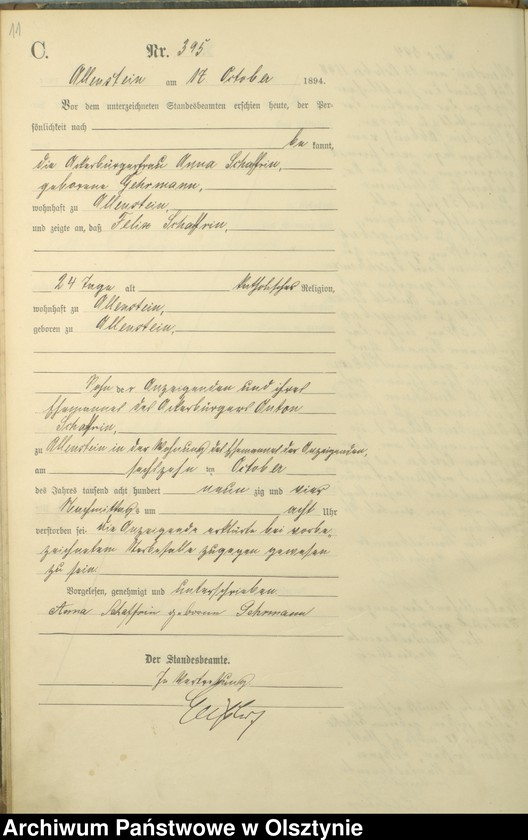 11
C.
Nr. 395
Allenstein am 17. October 1894.
Vor dem unterzeichneten Standesbeamten erschien heute, der Per-
sönlichkeit nach
be kannt,
die Ackerbürgerfrau Anna Schaffrin,
geborene Gehrmann,
wohnhaft zu Allenstein,
und zeigte an, daß Felix Schaffrin,
24 Tage alt katholischer Religion,
wohnhaft zu Allenstein,
geboren zu Allenstein,
Sohn der Anzeigenden und ihres
Ehemannes des Ackerbürgers Anton
Schaffrin,
zu Allenstein in der Wohnung des Ehemannes der Anzeigenden,
am sechszehn ten October
des Jahres tausend acht hundert neun zig und vier
Nachmittags um acht Uhr
verstorben sei. Die Anzeigende erklärte bei vorbe-
zeichnetem Sterbefalle zugegen gewesen
zu sein.
Vorgelesen, genehmigt und unterschrieben
Anna Schaffrin geborene
Der Standesbeamte.
In Vertretung
Archiwum Państwowe w Olsztynie